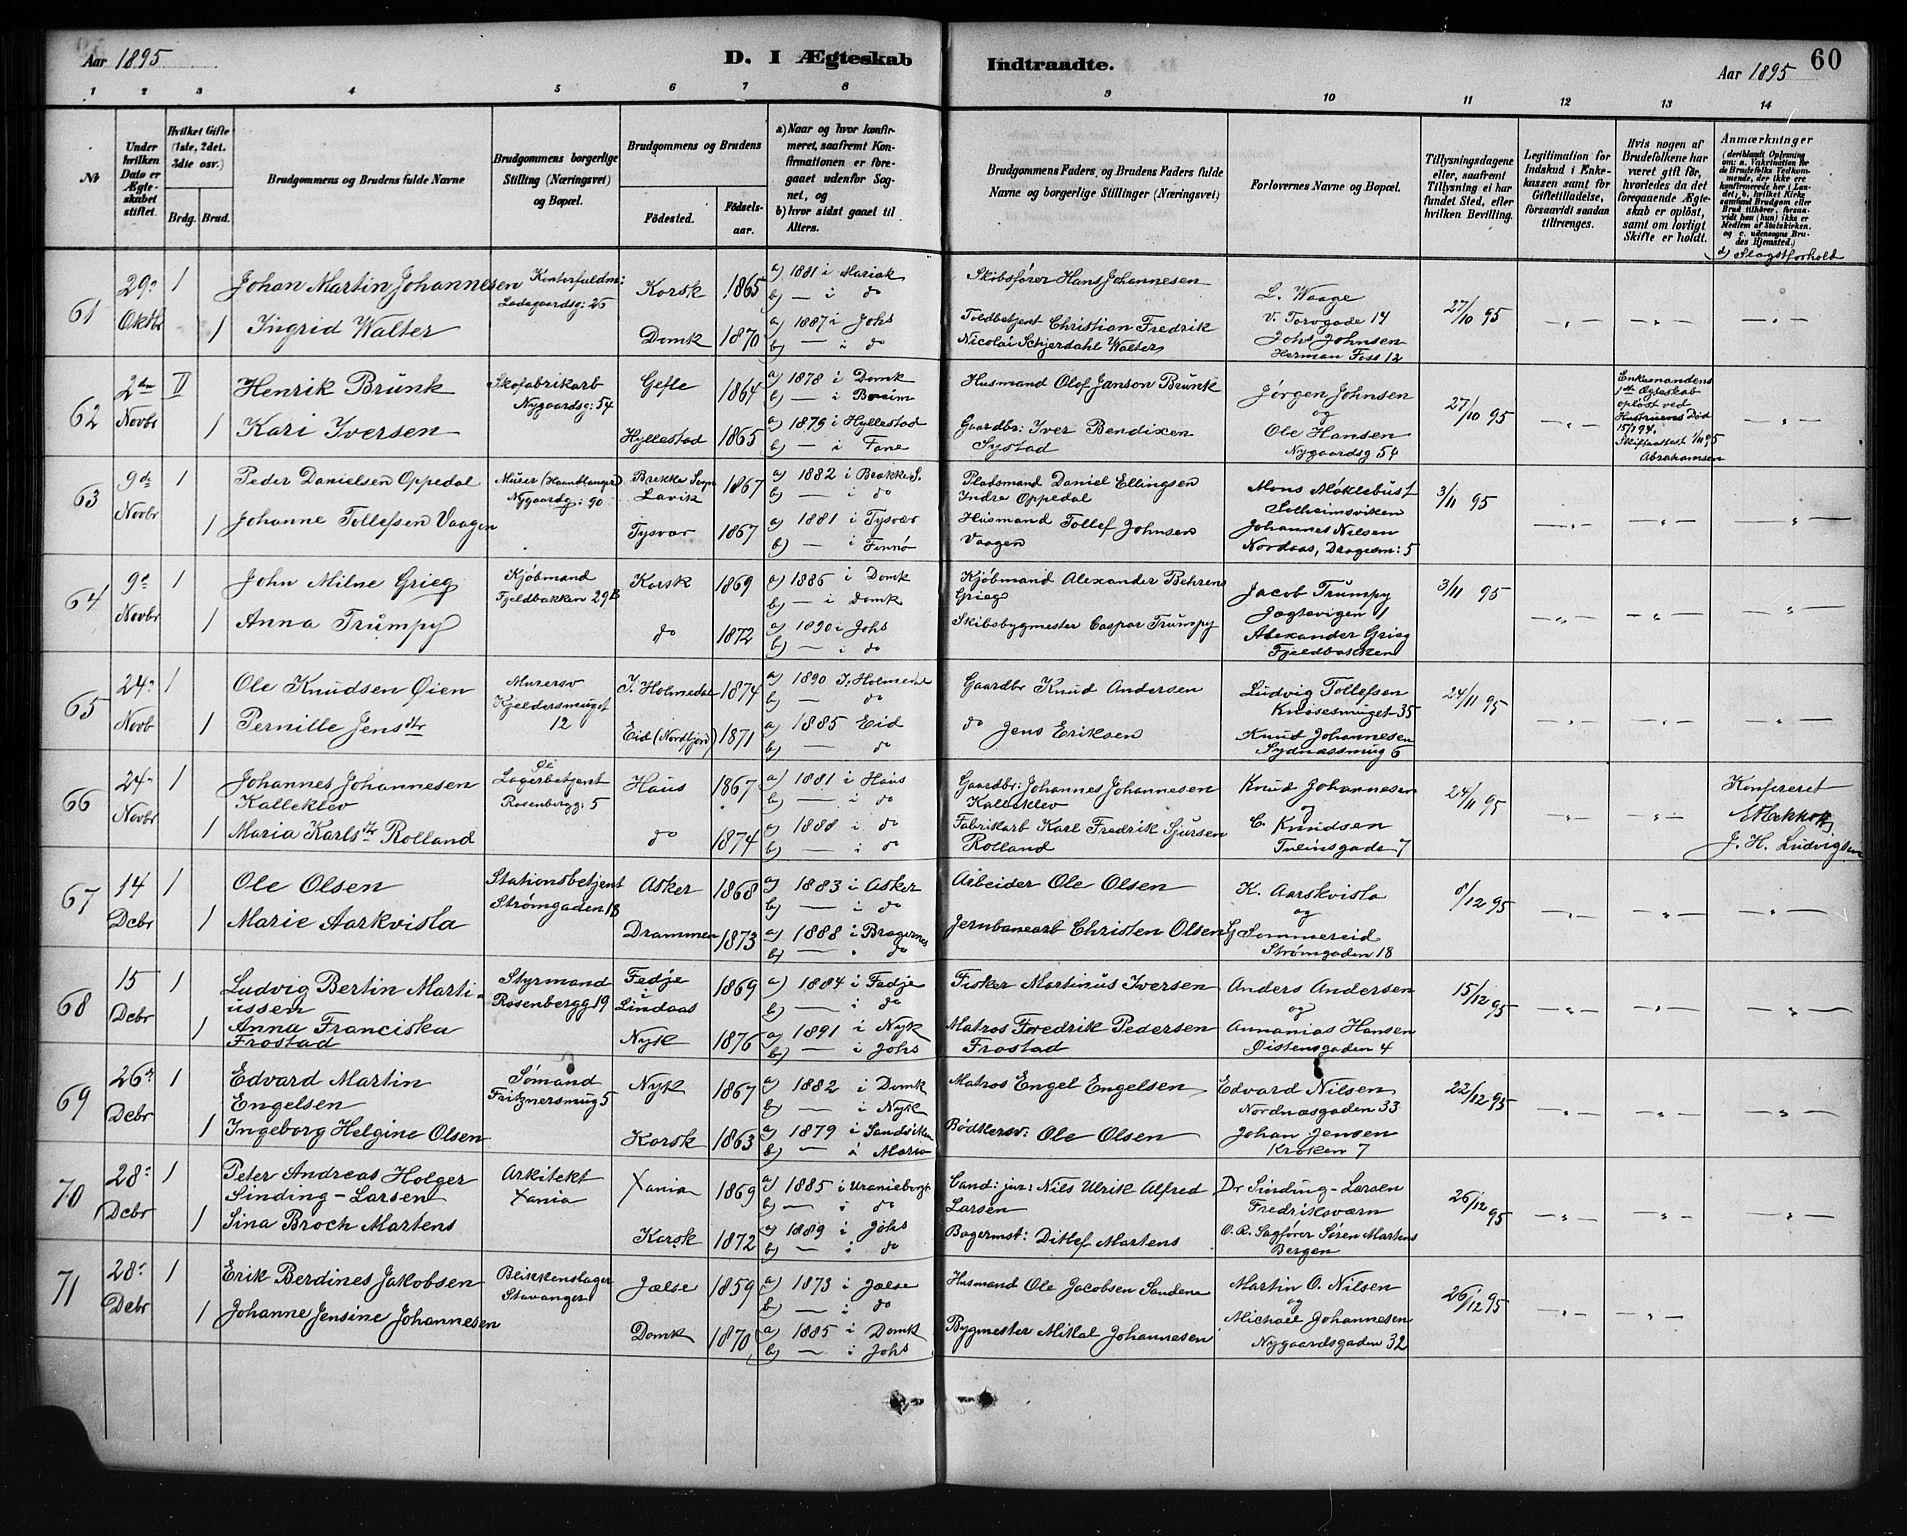 Aar 1895
D. I Ægteskab
Indtraadte.
60
Aar 1895
1 2 3 4 5 6 7 8 9 10 11 12 13 14
№
Under hvilken Dato er Ægteskabet stiftet.
Hvilket Gifte (1ste, 2det. 3die osv.)
Brdg. Brud.
Brudgommens og Brudens fulde Navne
Brudgommens borgerlige Stilling (Næringsvei) og Bopæl.
Brudgommens og Brudens
Födested.
Födsels-aar.
a) Naar og hvor konfirmeret, saafremt Konfirmationen er foregaaet udenfor Sognet, og
b) hvor sidst gaaet til Alters.
Brudgommens Faders, og Brudens Faders fulde Navne og borgerlige Stillinger (Næringsvei)
Forlovernes Navne og Bopæl.
Tillysningsdagene eller, saafremt Tillysning ei har fundet Sted, efter hvilken Bevilling.
Legitimation for Indskud i Enkekassen samt for Giftetilladelse, forsaavidt saadan tiltrænges.
Hvis nogen af Brudefolkene har været gift för, hvorledes da det foregaaende Ægteskab er oplöst, samt om lovligt Skifte er holdt.
Anmærkninger
(deriblandt Oplysning om: a. Vakcination for de Brudefolks Vedkommende, der ikke ere konfirmerede her i Landet; b, hvilket Kirkesamfund Brudgom eller Brud tilhörer, forsaavidt han (hun) ikke er Medlem af Statskirken. og c. udensogns Brudes Hjemsted.)
d) Slagstforhold
61 29. Oktbr 1 Johan Martin Johannesen Ladegaardsg: 25 Korsk 1865 a) 1881 i Mariak b) — i do Skibsfører Hans Johannesen L. Waage V. Torvgade 14 27/10 95
1 Ingrid Walter Domk 1870 a) 1887 i Johs b) — i do Toldbetjent Christian Fredrik Nicolai Schjerdahl Walter Johs Johnsen Herman Foss 12
62 2den Novbr II Henrik Brunk Skofabrikarb Nygaardsg: 54 Gefle 1864 a) 1878 i Domk b) — i Husmand Olof Janson Brunk Jørgen Johnsen og 27/10 95 Enkemandens 1ste Ægteskab opløst ved Hustruens Død 15/1 94. Skifteattest Abrahamsen
1 Kari Iversen Hyllestad 1865 a) 1879 i Hyllestad b) — i Fane Gaardbr: Iver Bendixen Systad Ole Hansen Nygaardsg 54
63 9de Novbr 1 Peder Danielsen Oppedal Murer (Haandlanger) Nygaardsg: 90 Brekke Sogn Lavik 1867 a) 1882 i Brække S. b) — i do Pladsmand Daniel Ellingsen Indre Oppedal Mons Møklebust Solheimsviken 3/11 95
1 Johanne Tollefsen Vaagen Tysvær 1867 a) 1881 i Tysvær b) — i Finnø Husmand Tollef Johnsen Vaagen Johannes Nilsen Nordaas, Dragesm: 5
64 9d Novbr 1 John Milne Grieg Kjøbmand Fjeldbakken 29B Korsk 1869 a) 1886 i Domk b) — i Domk Kjøbmand Alexander Behrens Grieg Jacob Trumpy Jægtevigen 1 3/11 95
1 Anna Trumpy do 1872 a) 1890 i Johs b) — i do Skibsbygmester Caspar Trumpy Alexander Grieg Fjeldbakken
65 24. Novb 1 Ole Knudsen Øien Murersv Kjeldersmuget 12 I. Holmedal 1874 a) 1890 I. Holmedal b) — do Gaardbr Knud Andersen Ludvig Tollefsen Knøsesmuget 35 24/11 95
1 Pernille Jensdtr Eid (Nordfjord) 1871 a) 1885 Eid b) — do do Jens Eriksen Knud Johannesen Sydnæssmug 6
66 24. Novbr 1 Johannes Johannesen Kalleklev Lagerbetjent Rosenbergg: 5 Haus 1867 a) 1881 i Haus b) — i do Gaardbr: Johannes Johannesen Kalleklev Knud Johannesen og 24/11 95 Konfereret
1 Maria Karlsdtr Rolland do 1874 a) 1888 i do b) — i do Fabrikarb Karl Fredrik Sjursen Rolland C. Knudsen Tueinsgade 7 J. H. Ludvigsen
67 14 Dcbr 1 Ole Olsen Stationsbetjent Strømgaden 18 Asker 1868 a) 1883 i Asker b) — i do Arbeider Ole Olsen K. Aarskvisla og 8/12 95
1 Marie Aarkvisla Drammen 1873 a) 1888 i Bragernes b) — do Jernbanearb Christen Olsen Sommereid Strømgaden 18
68 15 Dcbr 1 Ludvig Bertin Martiussen Styrmand Rosenbergg 19 Fedje i Lindaas 1869 a) 1884 i Fedje b) — i do Fisker Martinus Iversen Anders Andersen og 15/12 95
1 Anna Franciska Frostad Nyk 1876 a) 1891 i Nyk b) — i Johs Matros Fredrik Pedersen Frostad Annanias Hansen Øistensgaden 4
69 26. Dcbr 1 Edvard Martin Engelsen Sømand Fritznersmug 5 Nyk 1867 a) 1882 i Domk b) — i Nyk Matros Engel Engelsen Edvard Nilsen Nordnæsgaden 33 22/12 95
1 Ingeborg Helgine Olsen Korsk 1863 a) 1879 i Sandviken b) — i Maria Bødkersv: Ole Olsen Johan Jensen Kroken 7
70 28. Dcbr 1 Peter Andreas Holger Sinding-Larsen Arkitekt Xania Xania 1869 a) 1885 i Uranieborg b) — i do Cand: jur: Nils Ulrik Alfred Larsen Dr Sinding-Larsen Fredriksværn 26/12 95
1 Sina Broch Martens Korsk 1872 a) 1889 i Johs b) — i do Bagermst: Ditlef Martens O. R. Sagfører Søren Martens Bergen
71 28. Dcbr 1 Erik Berdines Jakobsen Blikkenslager Stavanger Jælse 1859 a) 1873 i Jælse b) — i do Husmand Ole Jacobsen Sandene Martin O. Nilsen og 26/12 95
1 Johanne Jensine Johannesen Domk 1870 a) 1885 i Domk b) — i Johs Bygmester Mikal Johannesen Michael Johannesen Nygaardsgaden 32